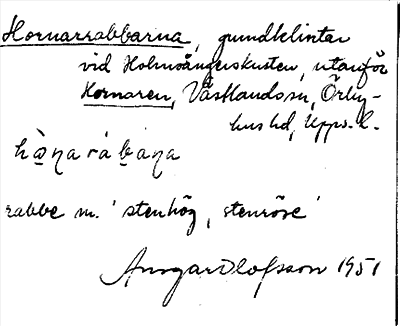 Hornarrabbarna, grundklintar
vid Holmsångerskusten, utanför
Hornaren, Västlandssn, Örby-
hus hd, Upps. l.
rabbe m. 'stenhög, stenröse'
Ansgar Olofsson 1951